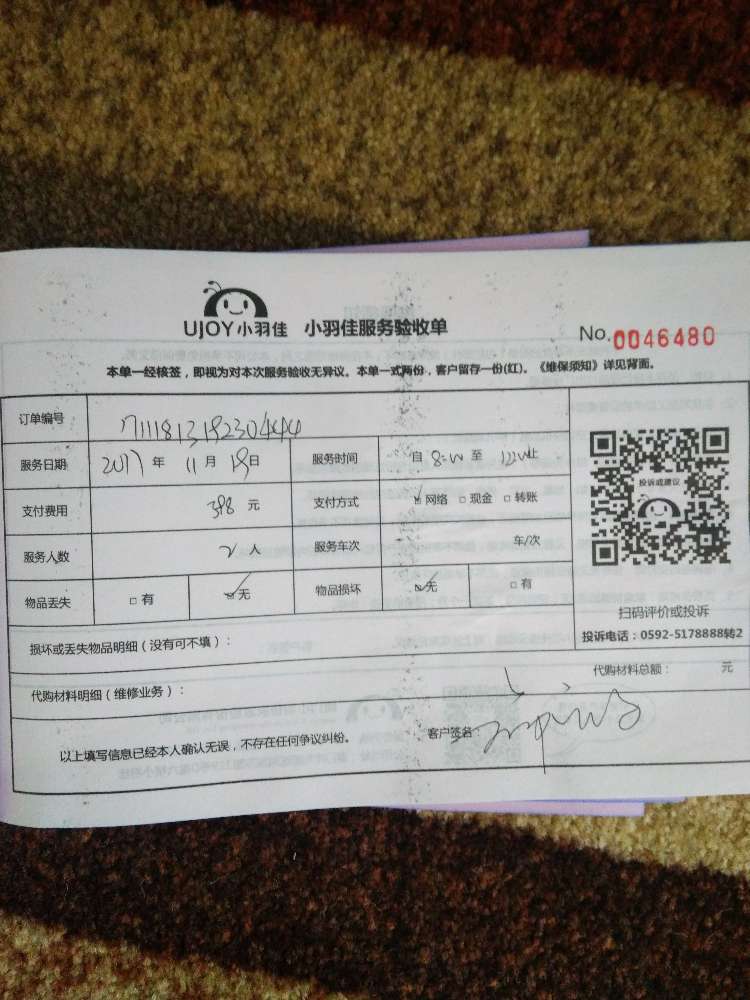 UJOY小羽佳 小羽佳服务验收单
No.0046480
本单一经核签，即视为对本次服务验收无异议。本单一式两份，客户留存一份(红)。《维保须知》详见背面。
订单编号
服务日期 2017年11月19日 服务时间 自8:00至12:00止
支付费用 398元 支付方式 网络 现金 转账
服务人数 2人 服务车次 车/次
物品丢失 有 无 物品损坏 无 有
投诉或建议
扫码评价或投诉
投诉电话：0592-5178888转2
损坏或丢失物品明细（没有可不填）：
代购材料明细（维修业务）：
代购材料总额： 元
以上填写信息已经本人确认无误，不存在任何争议纠纷。
客户签名：